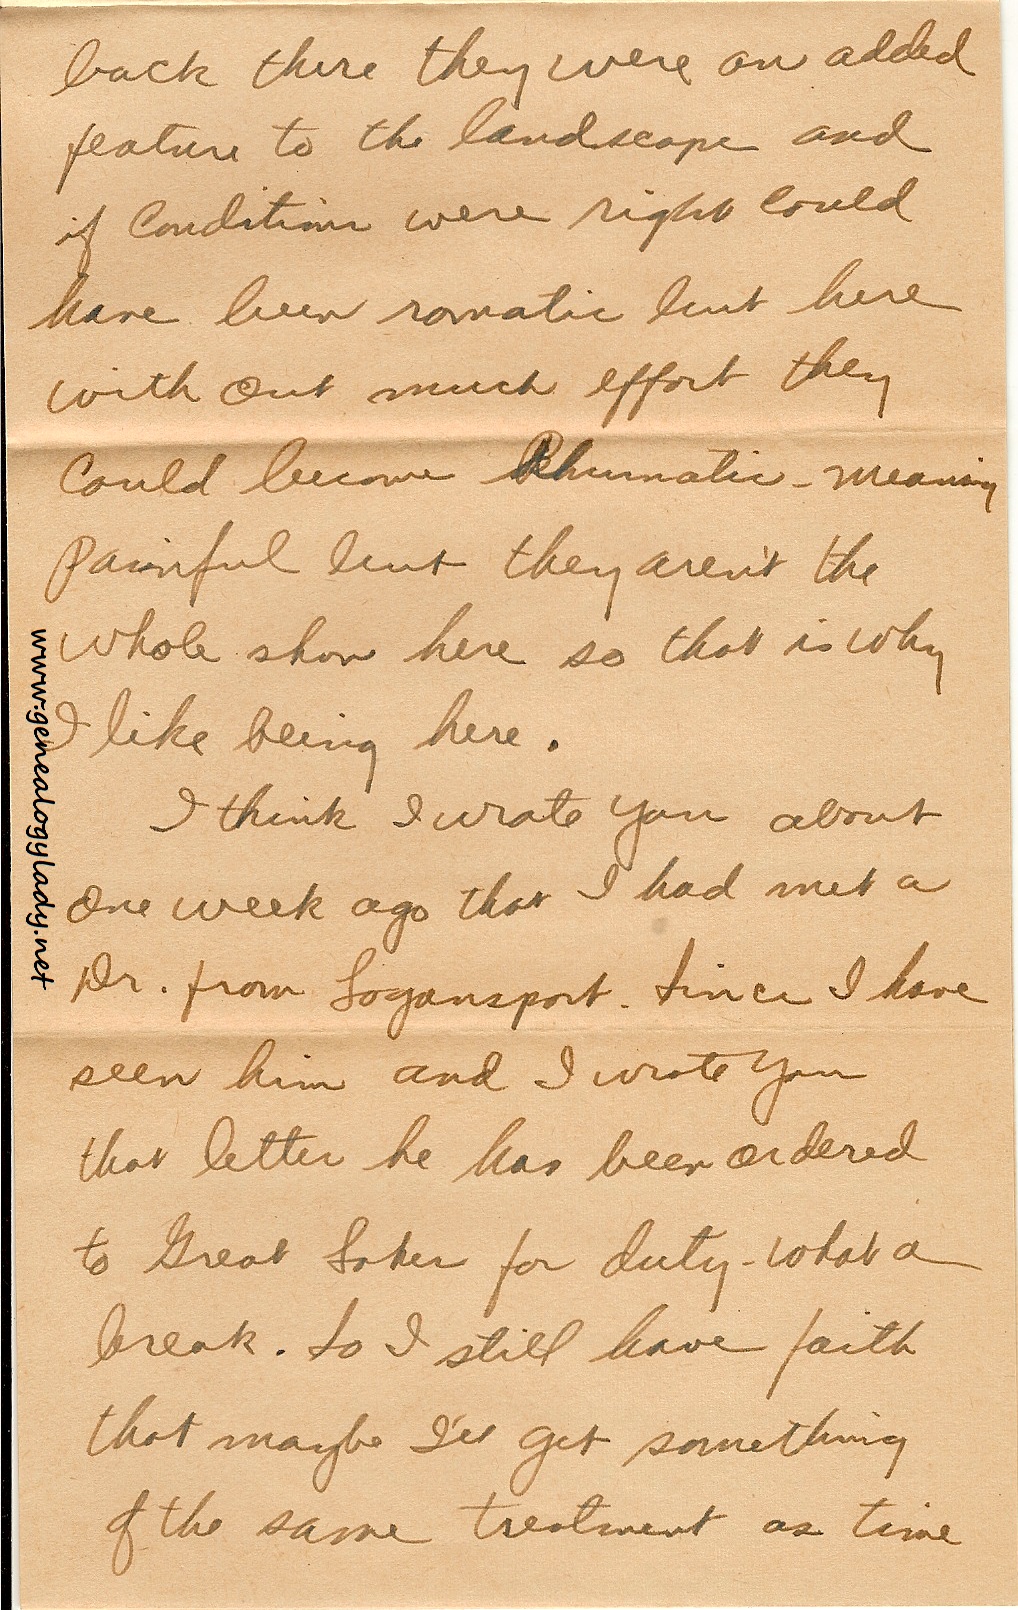 back there they were an added
feature to the landscape and
if conditions were right could
have been romatic but here
with out much effort they
could become Rhumatic - meaning
painful but they aren't the
whole show here so that is why
I like being here.
I think I wrote you about
one week ago that I had met a
Dr. from Logansport. Since I have
seen him and I wrote you
that letter he has been ordered
to Great Lakes for duty - what a
break. So I still have faith
that maybe I'll get something
of the same treatment as time
www.genealogylady.net